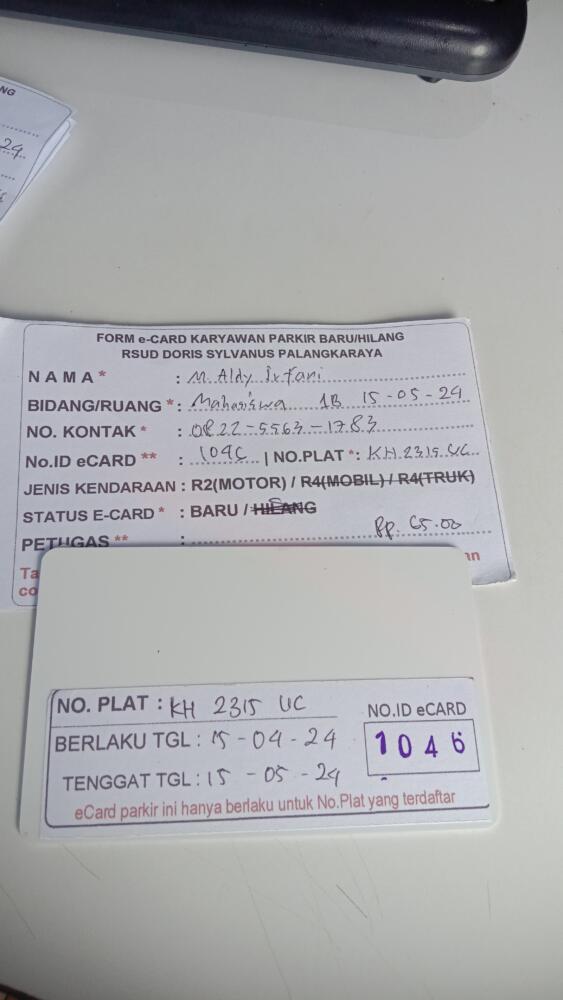 NG
24
FORM e-CARD KARYAWAN PARKIR BARU/HILANG
RSUD DORIS SYLVANUS PALANGKARAYA
NAMA* : M. Aldy Irfani
BIDANG/RUANG *: Mahasiswa 1B 15-05-24
NO. KONTAK * : 0822-5563-1783
No.ID eCARD ** : 1046 | NO.PLAT *: KH 2315 UC
JENIS KENDARAAN : R2(MOTOR) / R4(MOBIL) / R4(TRUK)
STATUS E-CARD * : BARU / HILANG
PETUGAS ** : Rp. 65.00
Ta
an
co
NO. PLAT : KH 2315 UC
NO.ID eCARD
BERLAKU TGL : 15-04-24
1046
TENGGAT TGL : 15-05-24
eCard parkir ini hanya berlaku untuk No.Plat yang terdaftar